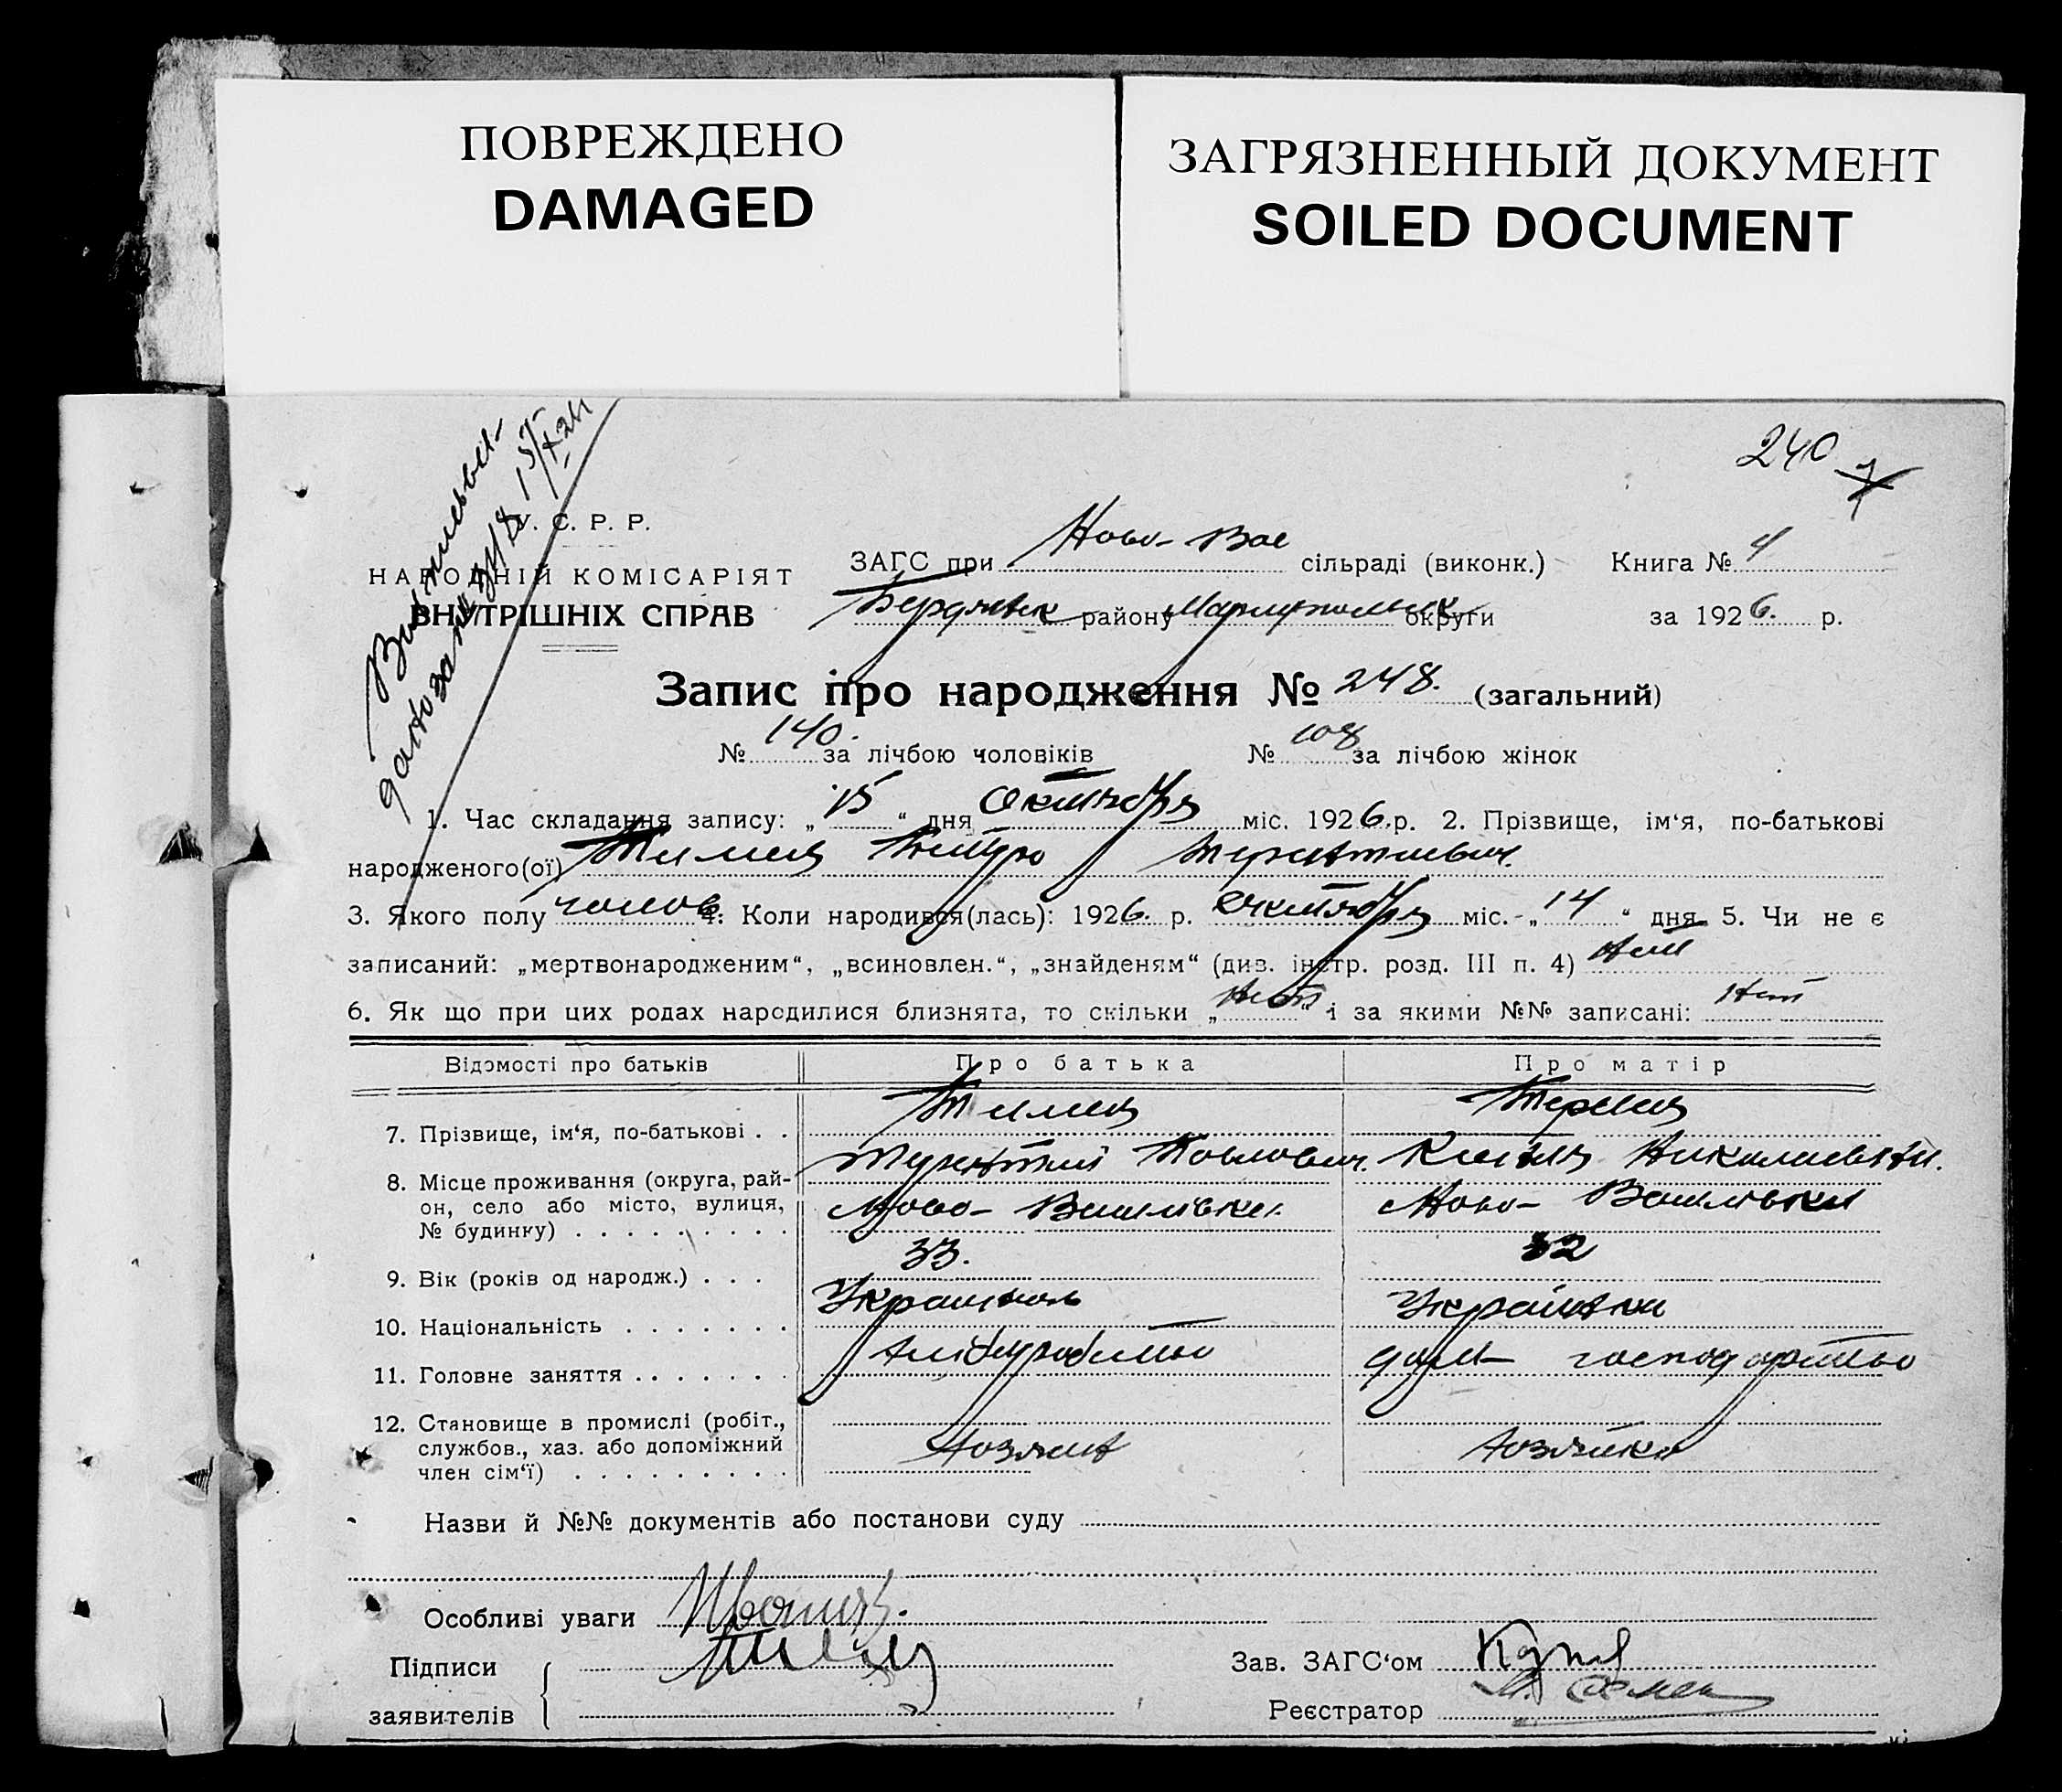 ПОВРЕЖДЕНО
DAMAGED
ЗАГРЯЗНЕННЫЙ ДОКУМЕНТ
SOILED DOCUMENT
240
У. С. Р. Р.
НАРОДНІЙ КОМІСАРІЯТ
ВНУТРІШНІХ СПРАВ
ЗАГС при Ново-Вас сільраді (виконк.) Книга № 4
Бердянськ району Мариупольськ округи за 1926. р.
Запис про народження № 248. (загальний)
№ 140. за лічбою чоловіків № 108 за лічбою жінок
1. Час складання запису: „15“ дня Октября міс. 1926.р. 2. Прізвище, ім‘я, по-батькові
народженого(ої) Петро Терентиевич.
3. Якого полу чолов 4. Коли народився(лась): 1926. р. Октября міс.-„14“ дня 5. Чи не є
записаний: „мертвонародженим“, „всиновлен.“, „знайденям“ (див. інстр. розд. III п. 4) нет
6. Як що при цих родах народилися близнята, то скільки „нет“ і за якими №№ записані: нет
Відомості про батьків Про батька Про матір
7. Прізвище, ім‘я, по-батькові . .
Терентий Павлович. Николаевна.
8. Місце проживання (округа, рай-
он, село або місто, вулиця,
№ будинку) . . . . . . . . .
Ново-Василівка Ново-Василівка
9. Вік (років од народж.) . . . 33. 32
10. Національність . . . . . . . Українець Українка
11. Головне заняття . . . . . . . хліборобство дом- господарство
12. Становище в промислі (робіт.,
службов., хаз. або допоміжний
член сім‘ї) . . . . . . . . .
хозяин хозяйка
Назви й №№ документів або постанови суду
Особливі уваги
Підписи
заявителів
Зав. ЗАГС‘ом
Реєстратор